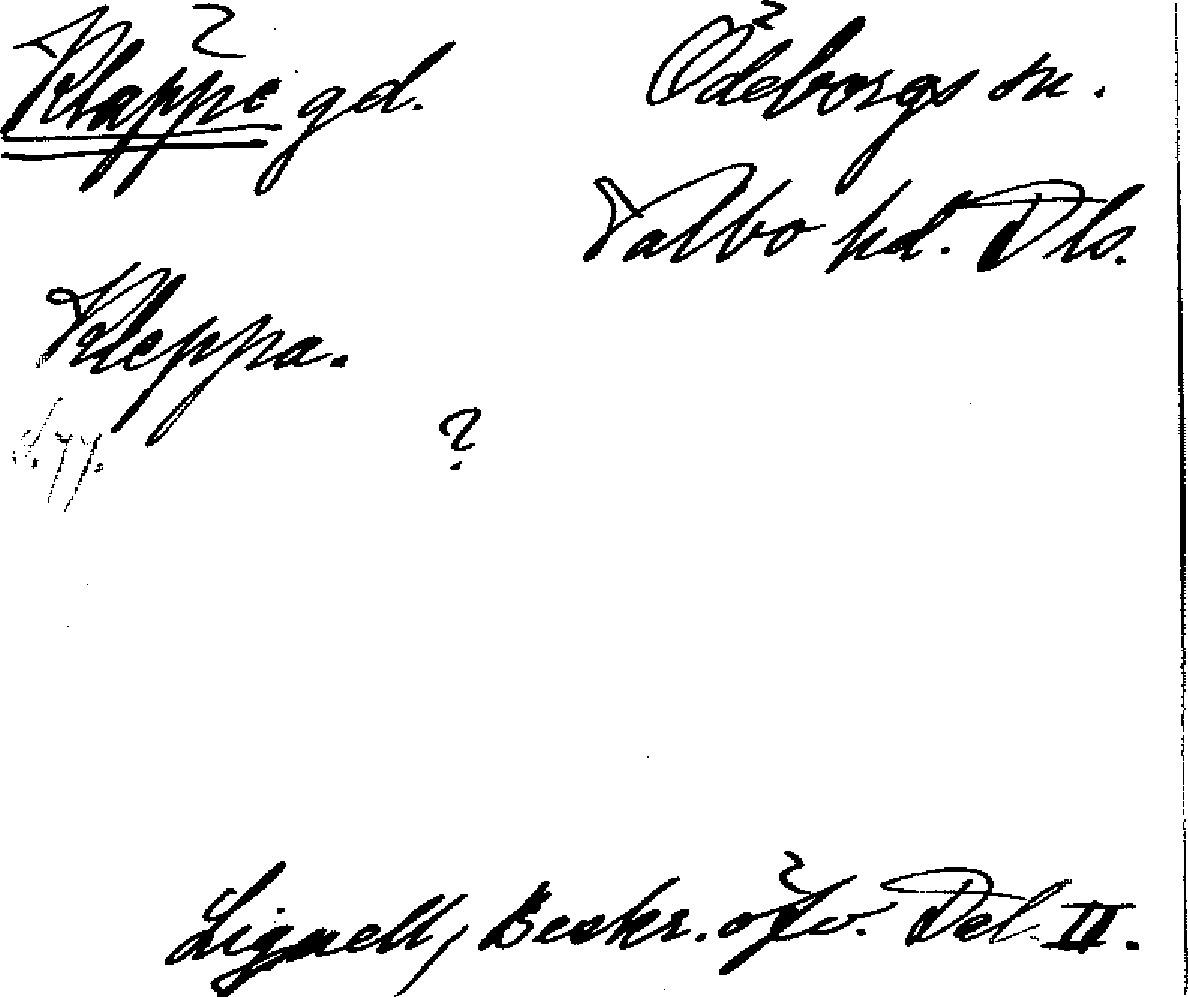 Kläppe gd. Ödeborgs sn.
Valbo hd. Dls.
Kleppa.
?
Lignell, Beskr. öfv. Dal. II.